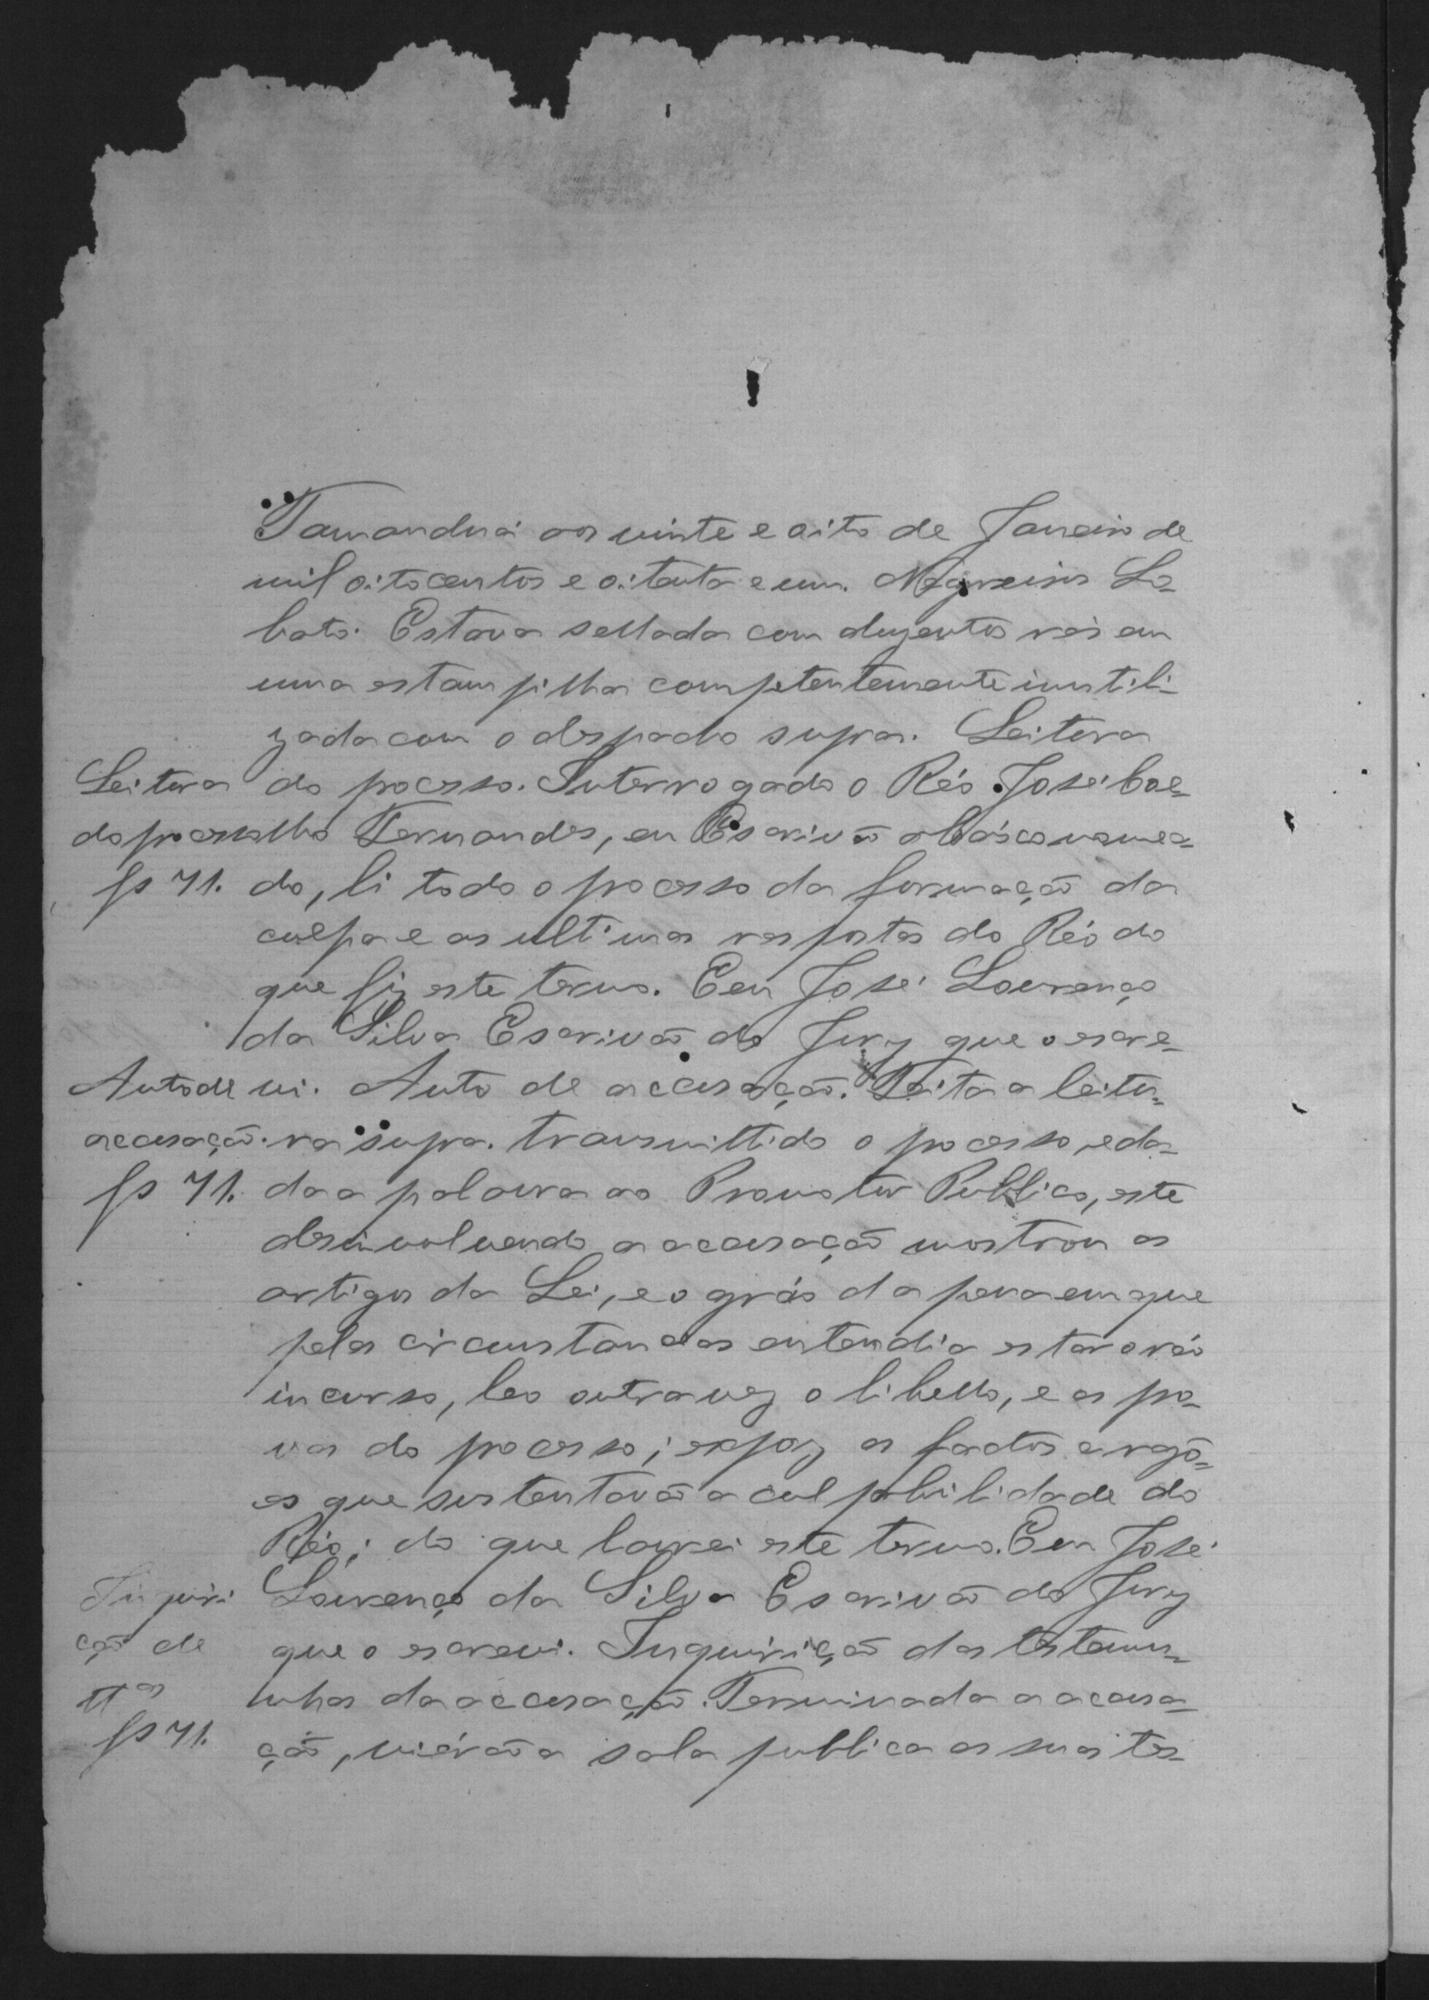 Tamanduá aos vinte e oito de Janeiro de
mil oitocentos e oitenta e um. Negreiros Lo-
bato. Estava sellada com duzentos reis em
uma estampilha competentemente inutili-
zada com o despacho supra. Leitura
Leitura
do processo
fs 71.
do processo. Interrogado o Réo José Coe-
lho Fernandes, eu Escrivão abáxo nomea-
do, li todo o processo da formação da
culpa e as ultimas respostas do Réo do
que fiz este termo. Eu José Lourenço
da Silva Escrivão do Jury que o escre-
Auto de
accusação.
fs 71.
vi. Auto de accusação. Feita a leitu-
ra supra. transmittido o processo, e da-
da a palavra ao Promotor Publico, este
desinvolvendo a accusação mostrou os
artigos da Lei, e o gráo da pena em que
pelas circunstancias entendia estar o réo
incurso, leo outra vez o libello, e as pro-
vas do processo; expoz os factos e rasõ-
es que sustentavão a culpabilidade do
Réo; do que lavrei este termo. Eu José
Inquiri
ção de
ttas
fs 71.
Lourenço da Silva Escrivão do Jury
que o escrevi. Inquirição das testemu-
nhas da accusação. Terminada a accusa-
ção, viérão a sala publica as suas tes-